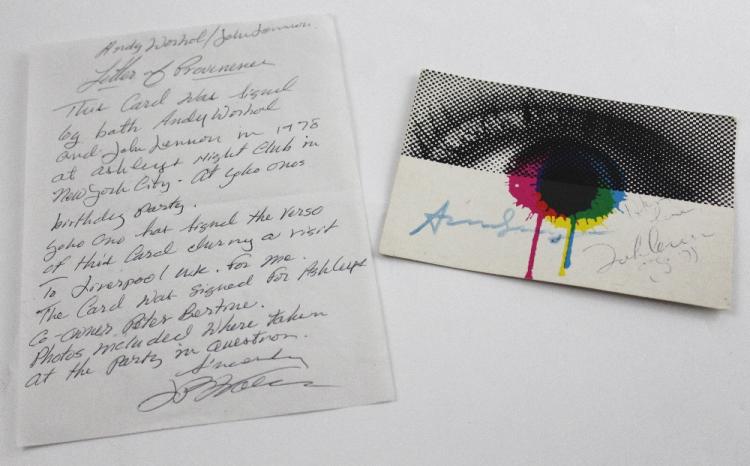 Andy Worhol/John Lennon.
Letter of Provenence
This Card was Signed
by both Andy Worhol
and John Lennon in 1978
at Ashleys Night Club in
New York City - At Yoko Onos
birthday party.
Yoko Ono has signed the verso
of this Card during a visit
To Liverpool UK. For me.
The Card was signed for Ashleys
Co-owner Peter Bertine.
Photos included where taken
at the party in question.
Sincerely
John Lennon